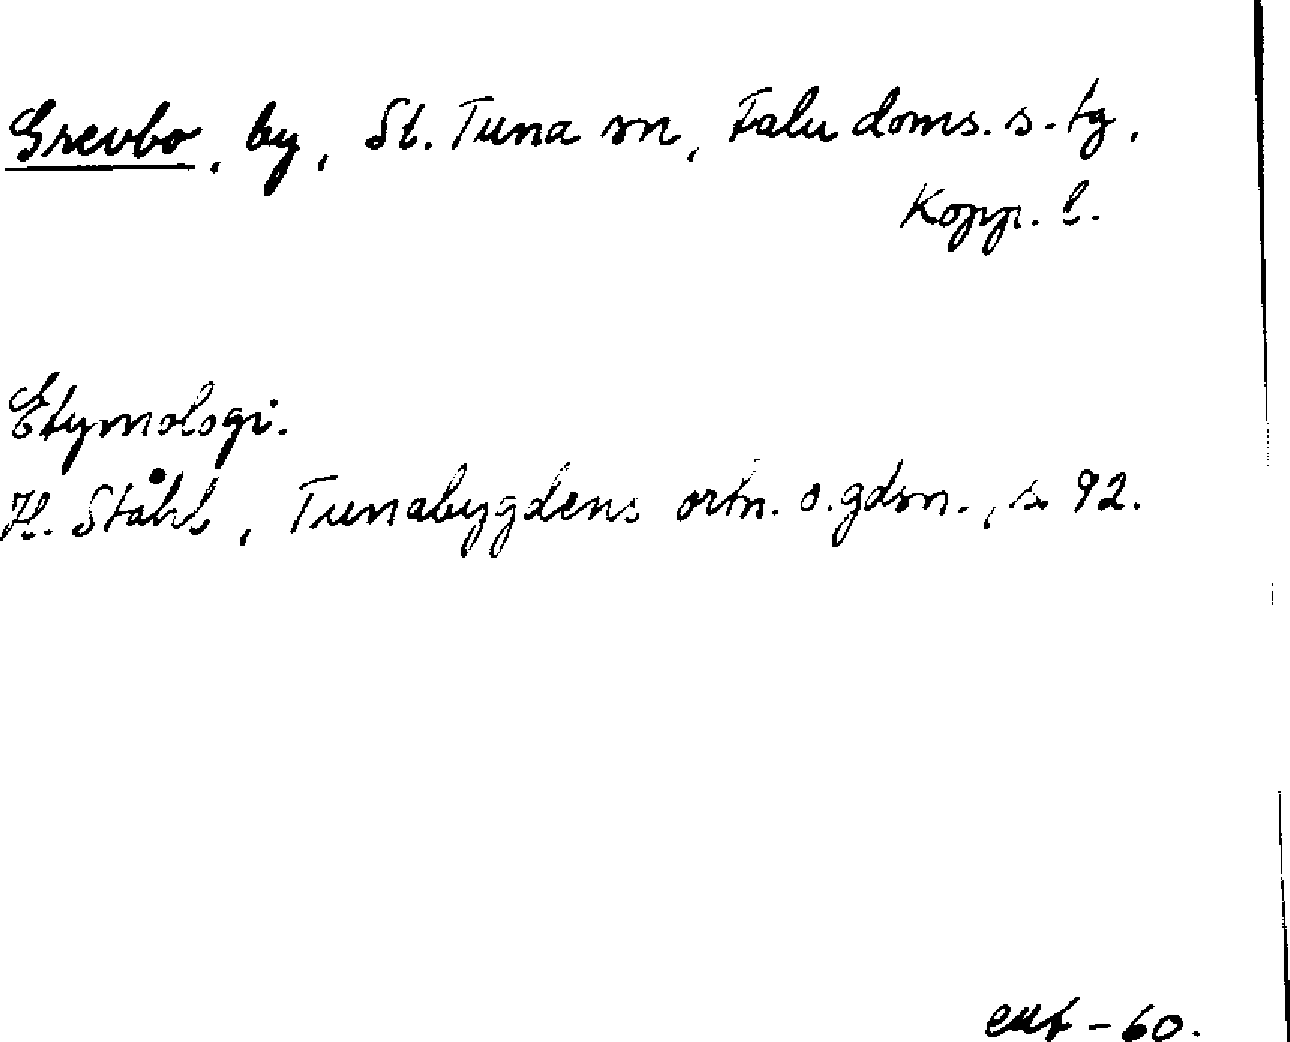 Grevbo, by, St. Tuna sn, Falu doms. s. tg,
Kopp. l.
Etymologi.
H. Ståhl, Tunabygdens ortn. o. gdsn., s. 92.
ext - 60.